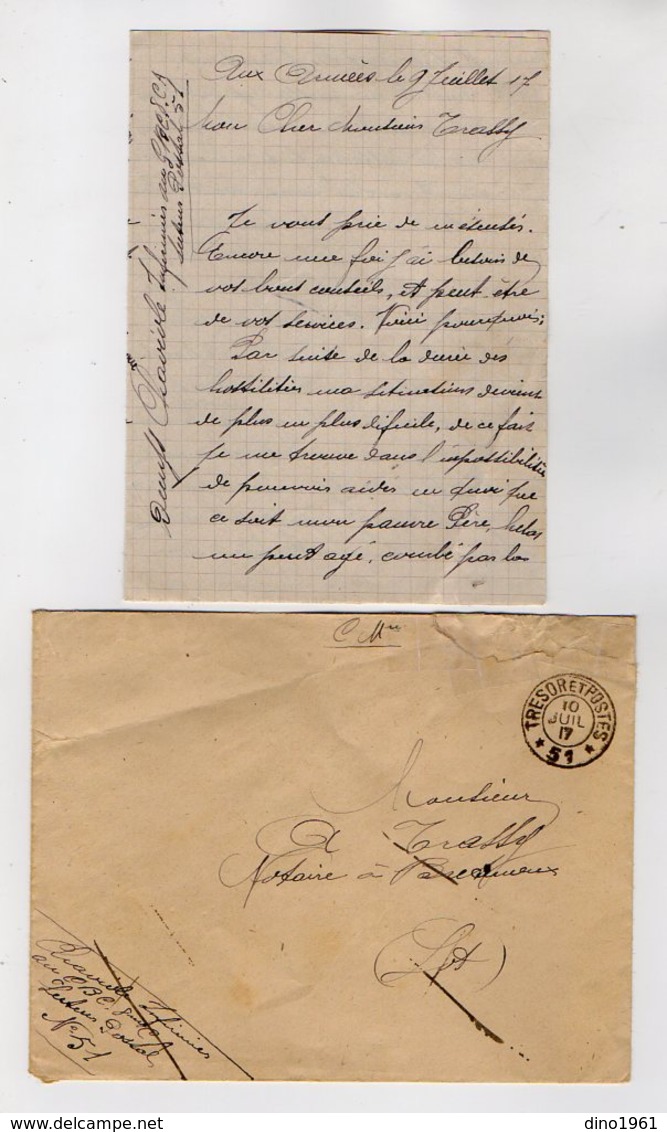 Aux Armées le 9 Juillet 17
Mon Cher Monsieur Trassy
Je vous prie de
Encore une fois j'ai besoin de
vos bons conseils, et peut être
de vos services. Voici pourquoi:
Par suite de la durée des
hostilités ma situation devient
de plus en plus dificile, de ce fait
je me trouve dans l'impossibilité
de pouvoir aider en quoi que
ce soit mon pauvre Père, helas
un peut agé, courbé par les
Infirmier au
Secteur Postal 51
C Mre
TRESOR ET POSTES
10
JUIL
17
* 51 *
Monsieur
Trassy
Notaire à
(Lot)
Infirmier
au
Secteur Postal
No 51
dino1961